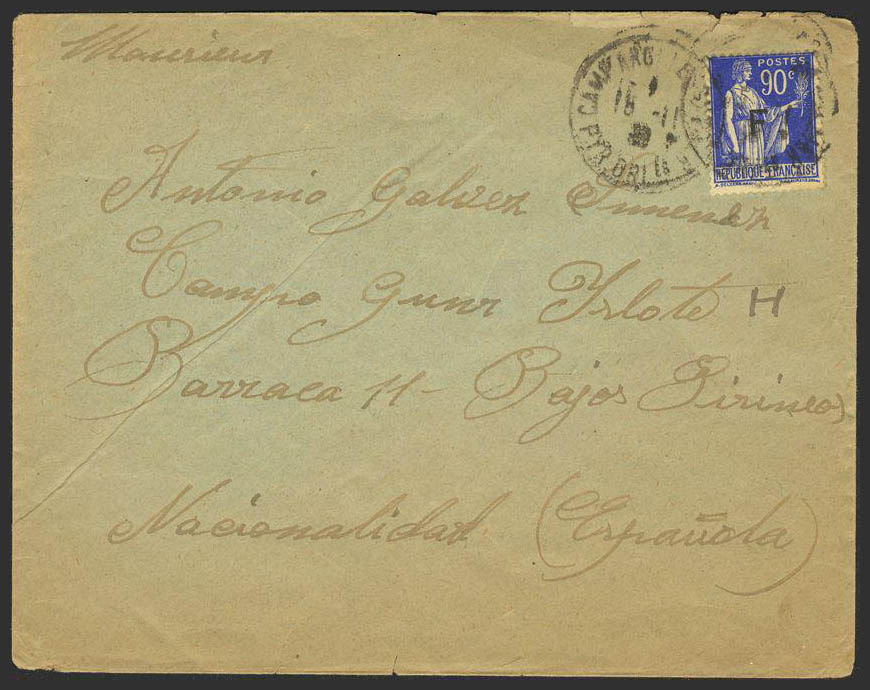 Maurieur
CAMP ARGELES
15 -11
39
PYR. ORLES
POSTES
90c
F
REPUBLIQUE FRANÇAISE
Antonio Galvez Jimenez
Campo Gurs Islote H
Barraca 11 - Bajos Pirineos
Nacionalidad (Española)